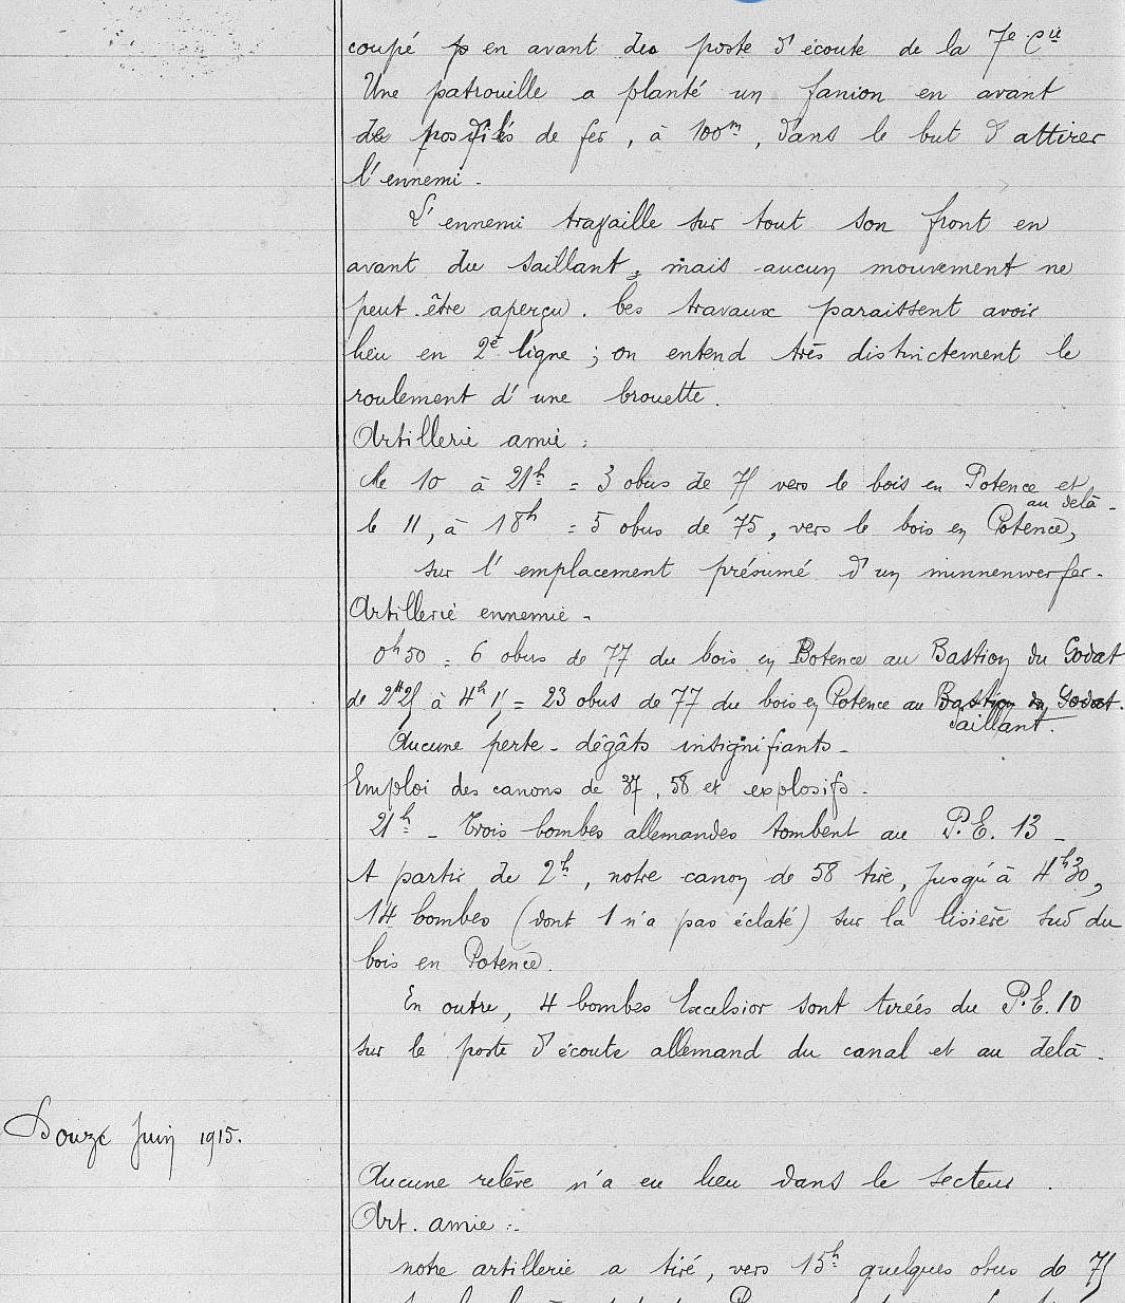 coupé en avant des poste d'écoute de la 7e Cie
Une patrouille a planté un fanion en avant
de nos fils de fer, à 100m, dans le but d'attirer
l'ennemi.
L'ennemi travaille sur tout son front en
avant du saillant, mais aucun mouvement ne
peut être aperçu. Les travaux paraissent avoir
lieu en 2e ligne ; on entend très distinctement le
roulement d'une brouette.
Artillerie amie :
Le 10 à 21h = 3 obus de 75 vers le bois en Potence et
au delà -
le 11, à 18h = 5 obus de 75, vers le bois en Potence,
sur l'emplacement présumé d'un minnenwerfer.
Artillerie ennemie -
0h50 = 6 obus de 77 du bois en Potence au Bastion du Godat
de 2h25 à 4h15 = 23 obus de 77 du bois en Potence au Bastion du Godat.
Saillant.
Aucune perte - dégâts insignifiants -
Emploi des canons de 37, 58 et explosifs.
21h - Trois bombes allemandes tombent au P.E. 13 -
A partir de 2h, notre canon de 58 tire, jusqu'à 4h30,
14 bombes (dont 1 n'a pas éclaté) sur la lisière sud du
bois en Potence.
En outre, 4 bombes Excelsior sont tirées du P.E. 10
sur le poste d'écoute allemand du canal et au delà.
Douze Juin 1915.
Aucune relève n'a eu lieu dans le secteur.
Art. amie :
notre artillerie a tiré, vers 15h quelques obus de 75